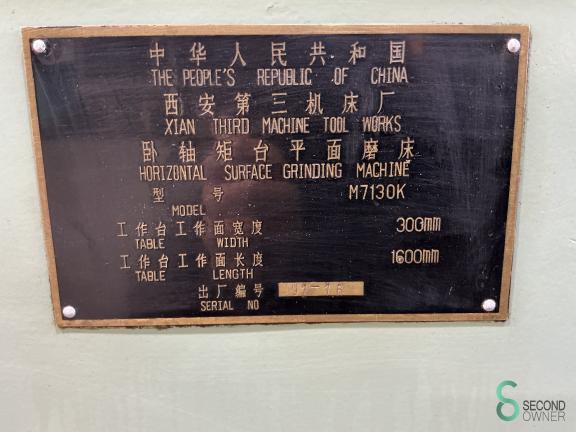 中华人民共和国
THE PEOPLE'S REPUBLIC OF CHINA
西安第三机床厂
XIAN THIRD MACHINE TOOL WORKS
卧轴矩台平面磨床
HORIZONTAL SURFACE GRINDING MACHINE
型 号 M7130K
MODEL
工作台工作面宽度 300mm
TABLE WIDTH
工作台工作面长度 1600mm
TABLE LENGTH
出厂编号
SERIAL NO
SECOND
OWNER